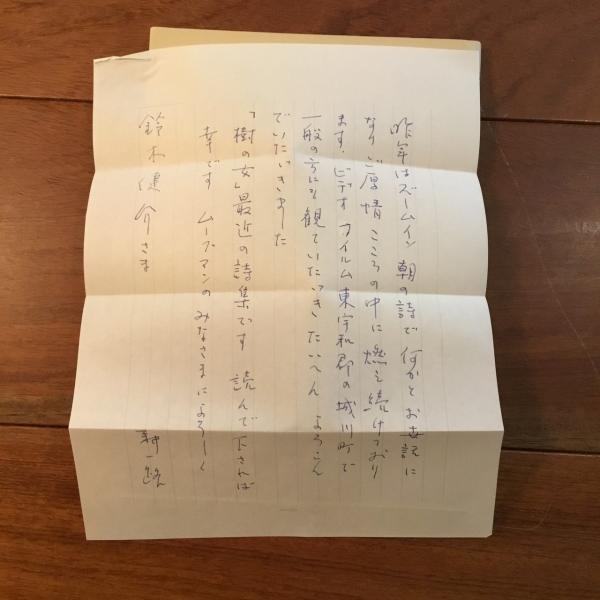 昨年はズームイン 朝の詩で 何かとお世話に
なり ご厚情 こころの中に燃え続けており
ます。ビデオ フイルム 東宇和郡の城川町で
一般の方にも観ていただき たいへん よろこん
でいただきました
「樹の女」最近の詩集です 読んで下されば
幸です ムーブマンのみなさまによろしく
鈴木健介さま
耕一路